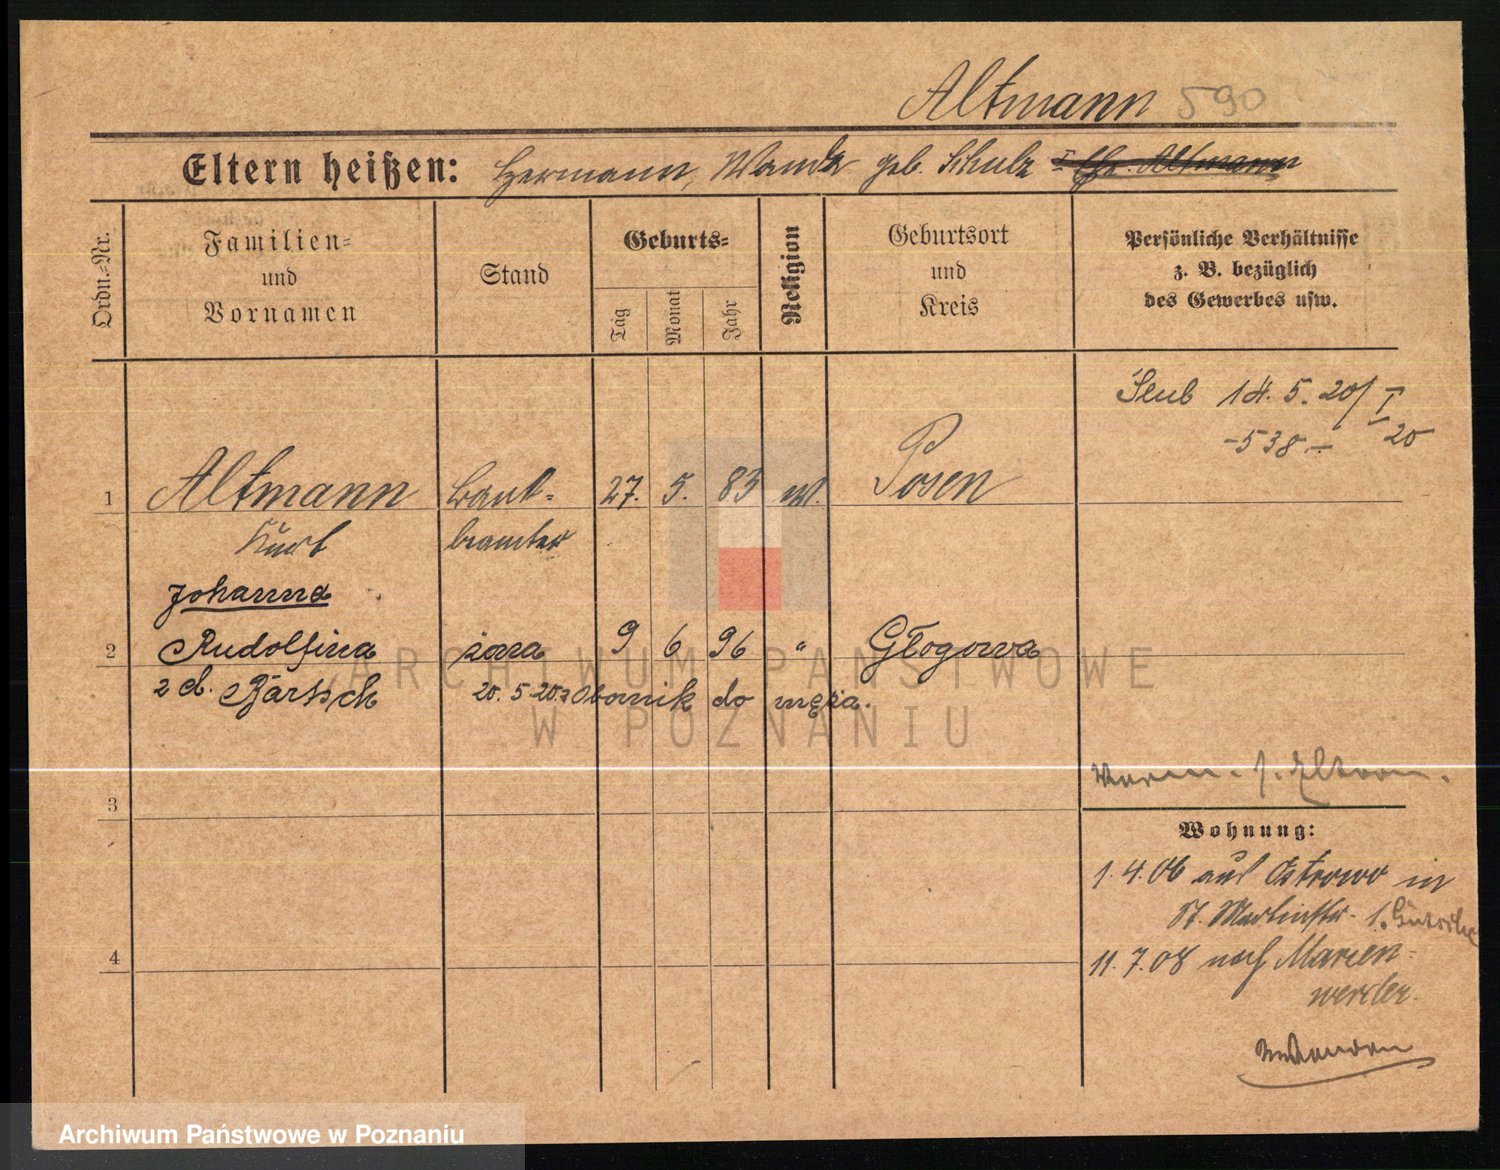 Altmann 590
Eltern heißen: Hermann, Wanda geb. Schulz
Ordn.-Nr.
Familien-
und
Vornamen
Stand
Geburts-
Tag
Monat
Jahr
Religion
Geburtsort
und
Kreis
Persönliche Verhältnisse
z. B. bezüglich
des Gewerbes usw.
14. 5. 20/I
-538.- 20
1 Altmann Bank- 27. 5. 83 Posen
Kurt beamter
Johanna
2 Rudolfina żona 9 6 96 " Głogowa
z d. Bartsch 20. 5. 20. z Obornik do męża.
ARCHIWUM PAŃSTWOWE
W POZNANIU
3
Wohnung:
1. 4. 06 aus Ostrowo in
St. Martinstr.
4
11. 7. 08 nach Marien-
werder.
Archiwum Państwowe w Poznaniu